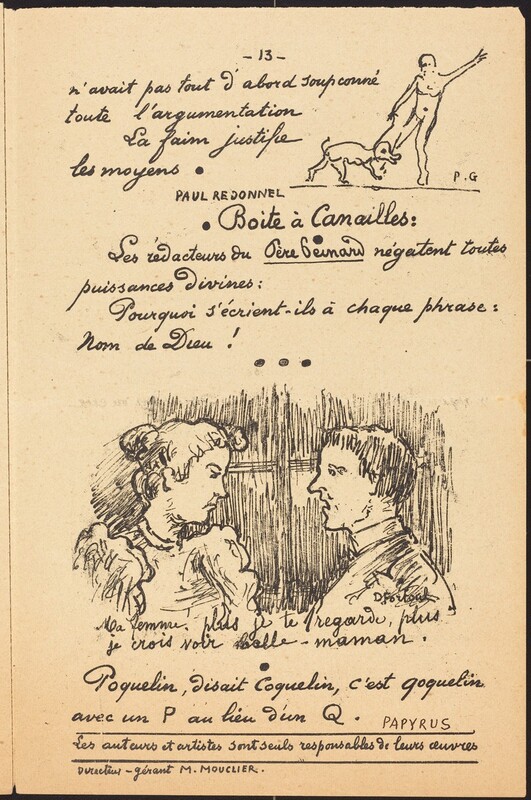 - 13 -
n'avait pas tout d'abord soupçonné
toute l'argumentation
La faim justifie
les moyens.
P. G
PAUL REDONNEL
Boite à Canailles:
Les rédacteurs du Père Peinard négatent toutes
puissances divines:
Pourquoi s'écrient-ils à chaque phrase:
Nom de Dieu!
D. Fortoul
Ma femme, plus je te regarde, plus
je crois voir belle-maman.
Poquelin, disait Coquelin, c'est qoquelin
avec un P au lieu d'un Q. PAPYRUS
Les auteurs et artistes sont seuls responsables de leurs œuvres
Directeur-gérant M. MOUCLIER.